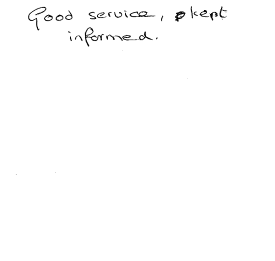 Good service, kept
informed.